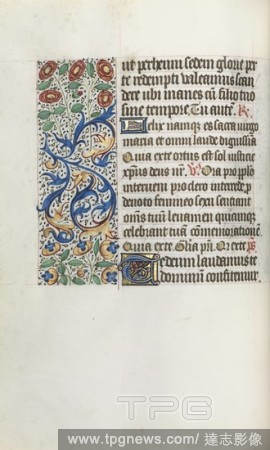 ut per te eum sedem glorie per
te redempti valeamus scan
dere ubi manes cū filio tuo
sine tempore. Tu autē. R.
Felix namque es sacra virgo
maria et omni laude dignissima
Quia ex te ortus est sol iusticie
xp̄us deus nr̄. V. Ora pro pp̄lo
interveni pro clero intercede p̄
devoto femineo sexu sentiant
om̄s tuū levamen quicumq̄
celebrant tuā cōmemorationē
Quia ex te. Gl̄ia pr̄i. Q̄ ex te. ps
Te deum laudamus te
dominū confitemur.
TPG
www.tpgnews.com/達志影像